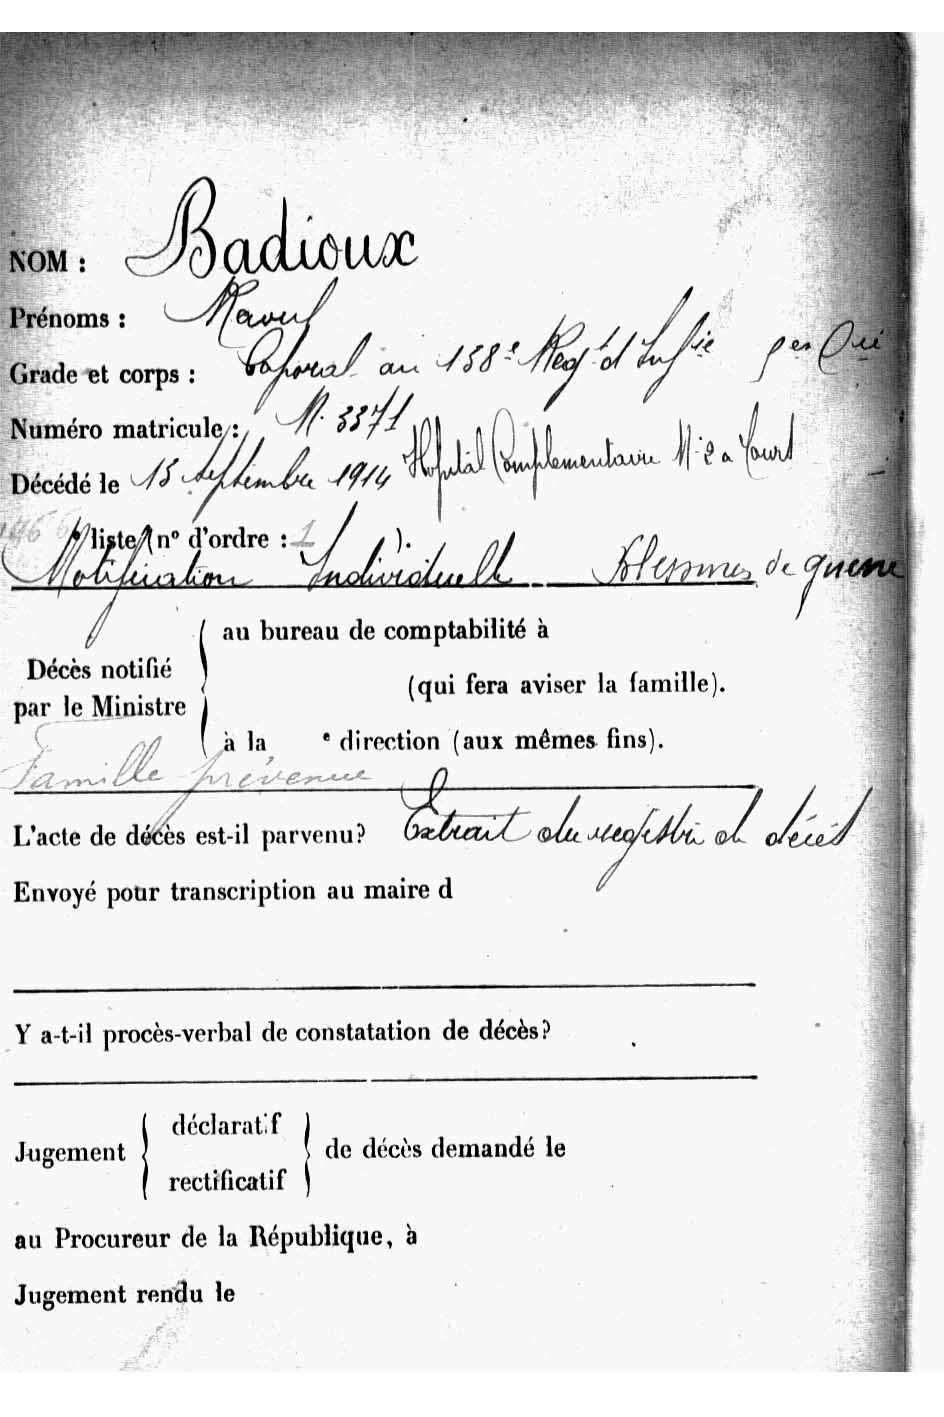 NOM : Badioux
Prénoms : Raoul
Grade et corps : Caporal au 138e Regt d'Infie
Numéro matricule : N. 3371
Décédé le 13 Septembre 1914 Hopital Complementaire N° 2 a Tours
liste (n° d'ordre : 1 ).
Notification Individuelle Blessures de guerre
au bureau de comptabilité à
Décès notifié
(qui fera aviser la famille).
par le Ministre
à la e direction (aux mêmes fins).
Famille prévenue
L'acte de décès est-il parvenu? Extrait du registre de décès
Envoyé pour transcription au maire d
Y a-t-il procès-verbal de constatation de décès?
déclaratif
Jugement de décès demandé le
rectificatif
au Procureur de la République, à
Jugement rendu le